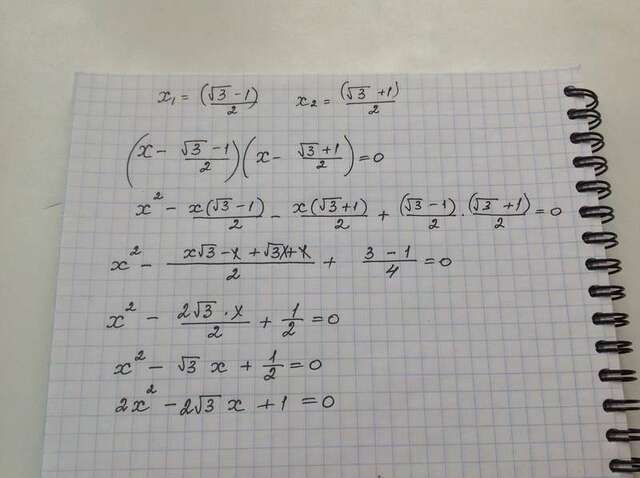 x₁ = (√3 - 1)/2    x₂ = (√3 + 1)/2
(x - (√3 - 1)/2)(x - (√3 + 1)/2) = 0
x² - x(√3 - 1)/2 - x(√3 + 1)/2 + (√3 - 1)/2 · (√3 + 1)/2 = 0
x² - (x√3 - x + √3x + x)/2 + (3 - 1)/4 = 0
x² - (2√3 · x)/2 + 1/2 = 0
x² - √3 x + 1/2 = 0
2x² - 2√3 x + 1 = 0